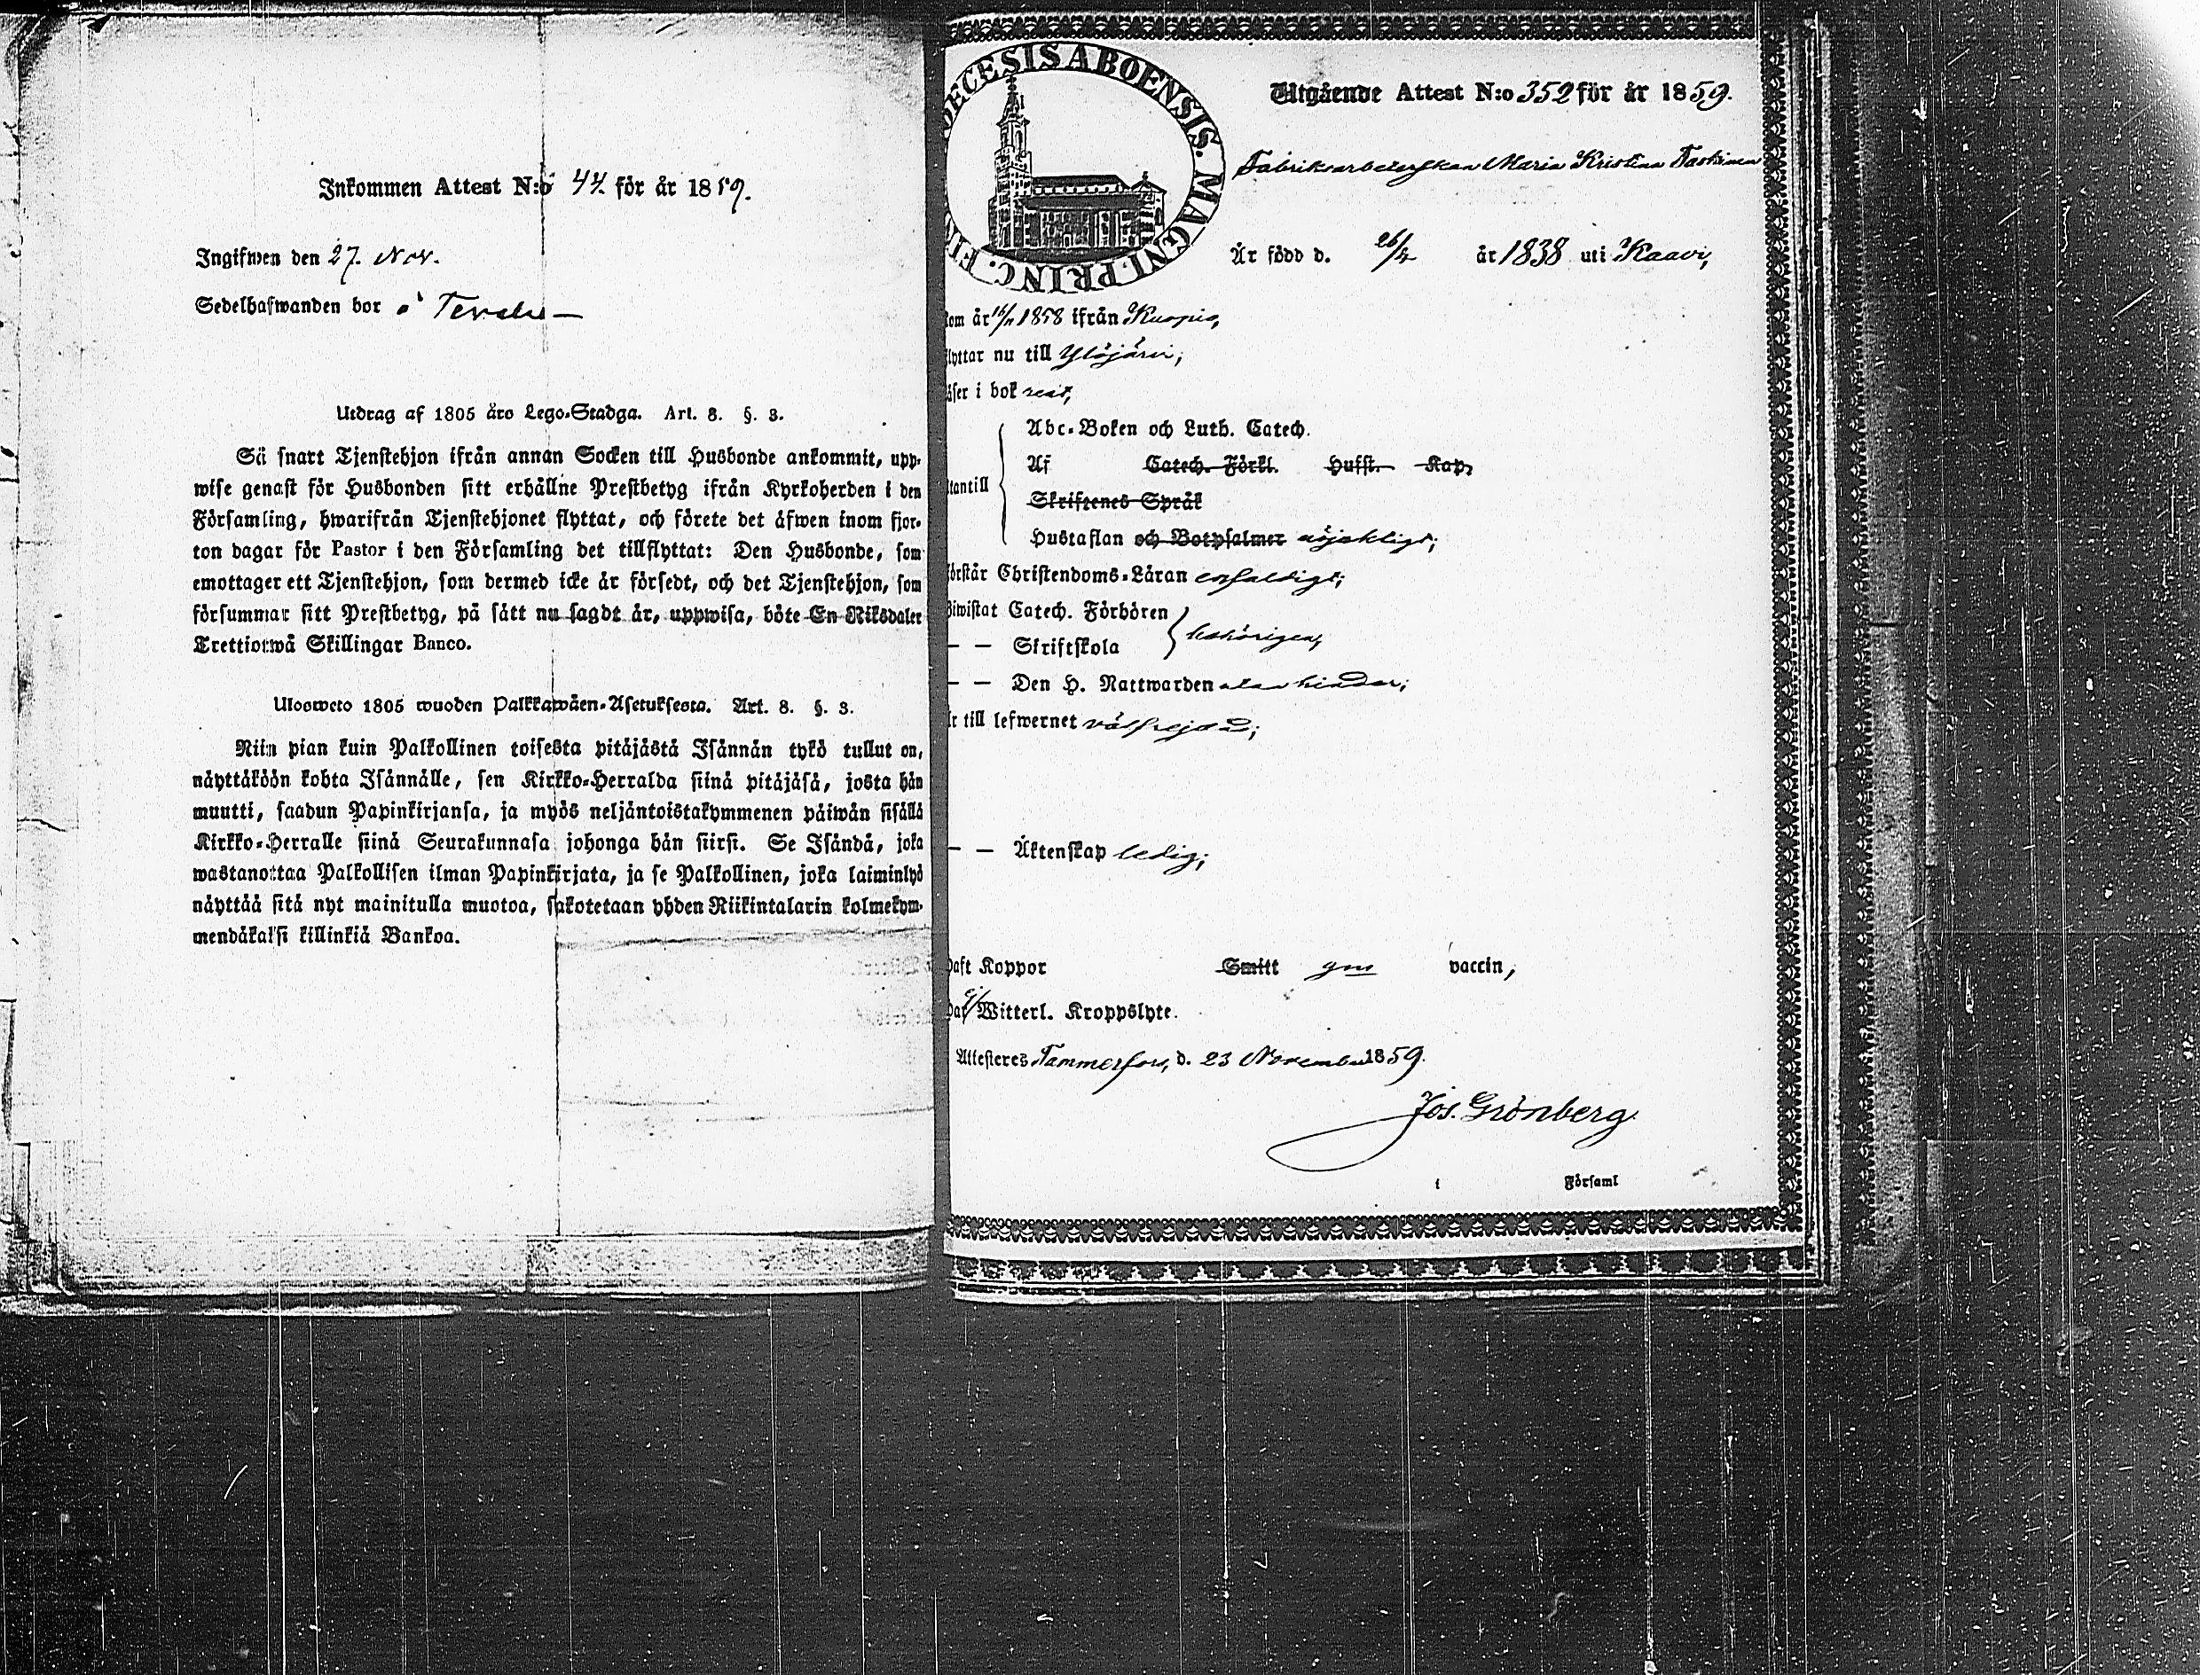 Inkommen Attest N:o 44 för år 1859.
Ingifwen den 27. Nov.
Sedelhafwanden bor å
Utdrag af 1805 års Lego-Stadga. Art. 8. §. 3.
Så snart Tjenstehjon ifrån annan Socken till Husbonde ankommit, upp-
wise genast för Husbonden sitt erhållne Prestbetyg ifrån Kyrkoherden i den
Församling, hwarifrån Tjenstehjonet flyttat, och förete det äfwen inom fjor-
ton dagar för Pastor i den Församling det tillflyttat: Den Husbonde, som
emottager ett Tjenstehjon, som dermed icke är försedt, och det Tjenstehjon, som
försummar sitt Prestbetyg, på sätt nu sagdt är, uppwisa, böte En Riksdaler
Trettiotwå Skillingar Banco.
Ulosweto 1805 wuoden Palkkawäen-Asetuksesta. Art. 8. §. 3.
Niin pian kuin Palkollinen toisesta pitäjästä Isännän tykö tullut on,
näyttäköön kohta Isännälle, sen Kirkko-Herralda siinä pitäjäsä, josta hän
muutti, saadun Papinkirjansa, ja myös neljäntoistakymmenen päiwän sisällä
Kirkko-Herralle siinä Seurakunnasa johonga hän siirsi. Se Isändä, joka
wastanottaa Palkollisen ilman Papinkirjata, ja se Palkollinen, joka laiminlyö
näyttää sitä nyt mainitulla muotoa, sakotetaan yhden Riikintalarin kolmekym-
mendäkaksi killinkiä Bankoa.
ECESIS ABOENSIS. MAGNI. PRINC. FIN
Utgående Attest N:o 352 för år 1859.
Fabriksarbeterskan Maria Kristina Taskinen
Är född d. 26/4 år 1838 uti Kaavi,
kom år 16/11 1858 ifrån Kuopio,
flyttar nu till Ylöjärvi;
läser i bok rent,
utantill
Abc-Boken och Luth. Catech.
Af Catech. Förkl. Hufst. Kap,
Skriftenes Språk
Hustaflan och Botpsalmer nöjakligt;
förstår Christendoms-Läran enfaldigt;
Biwistat Catech. Förhören
— — Skriftskola behörigen,
— — Den H. Nattwarden utan hinder;
är till lefwernet välfrejdad;
— — Äktenskap ledig;
Haft Koppor Smitt gm vaccin,
Har ej Witterl. Kroppslyte.
Attesteres Tammerfors, d. 23 November 1859.
Jos. Grönberg
i Församl